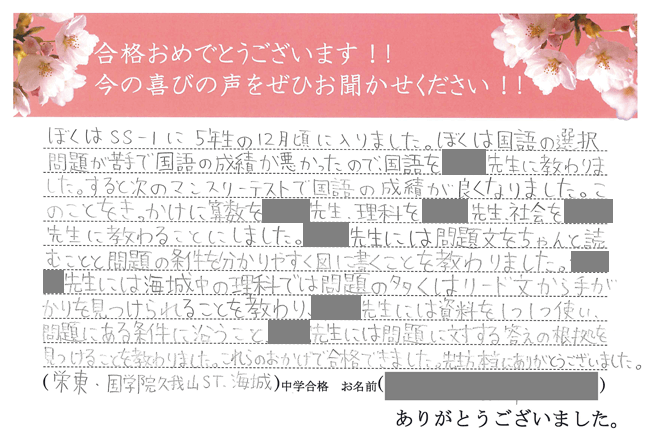 合格おめでとうございます!!
今の喜びの声をぜひお聞かせください!!
ぼくはSS-1に5年生の12月頃に入りました。ぼくは国語の選択
問題が苦手で国語の成績が悪かったので国語を 先生に教わりま
した。すると次のマンスリーテストで国語の成績が良くなりました。こ
のことをきっかけに算数を 先生、理科を 先生、社会を
先生に教わることにしました。 先生には問題文をちゃんと読
むことと問題の条件を分かりやすく図に書くことを教わりました。
先生には海城中の理科では問題の多くはリード文から手が
かりを見つけられることを教わり、 先生には資料を1つ1つ使い、
問題にある条件に沿うこと、 先生には問題に対する答えの根拠を
見つけることを教わりました。これらのおかげで合格できました。先生方本当にありがとうございました。
(栄東・国学院久我山ST.海城)中学合格 お名前( )
ありがとうございました。